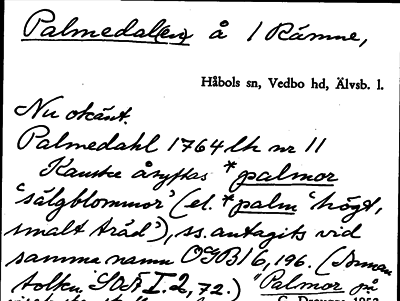 Palmedal(en) å / Rämne,
Håbols sn, Vedbo hd, Älvsb. l.
Nu okänt.
Palmedahl 1764 lh nr 11
Kanske åsyftas *palmor
'sälgblommor' (el. *palm 'högt,
smalt träd'), ss. antagits vid
samma namn OGB 6, 196. (Annan
tolkn. SOÄ I. 2, 72.) "Palmor på